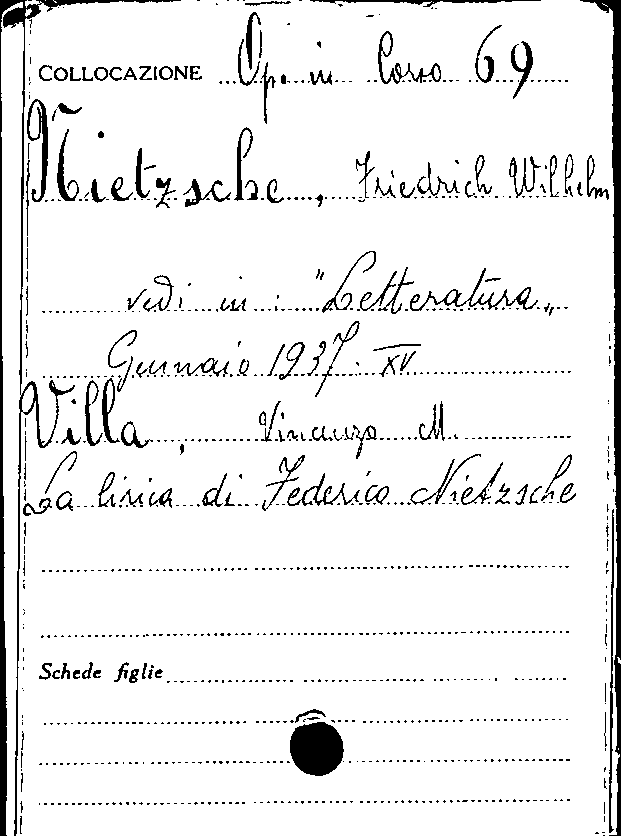 COLLOCAZIONE Op. in Corso 69
Nietzsche, Friedrich Wilhelm
vedi in: "Letteratura„
Gennaio 1937. XV
Villa, Vincenzo M.
La lirica di Federico Nietzsche
Schede figlie